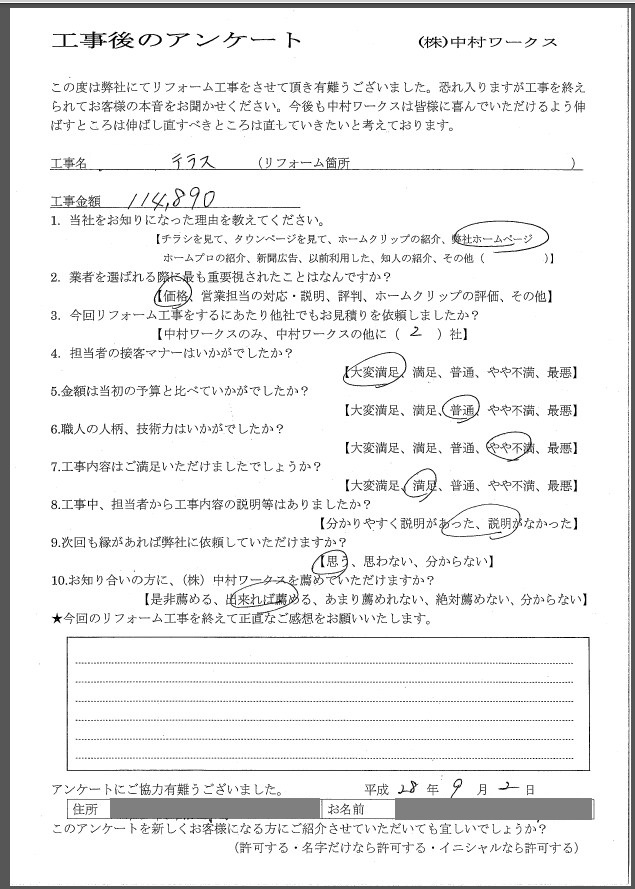 工事後のアンケート　(株)中村ワークス
この度は弊社にてリフォーム工事をさせて頂き有難うございました。恐れ入りますが工事を終え
られてお客様の本音をお聞かせください。今後も中村ワークスは皆様に喜んでいただけるよう伸
ばすところは伸ばし直すべきところは直していきたいと考えております。
工事名　テラス　（リフォーム箇所　　　）
工事金額　114,890
1. 当社をお知りになった理由を教えてください。
【チラシを見て、タウンページを見て、ホームクリップの紹介、弊社ホームページ
ホームプロの紹介、新聞広告、以前利用した、知人の紹介、その他（　　　）】
2. 業者を選ばれる際に最も重要視されたことはなんですか？
【価格、営業担当の対応・説明、評判、ホームクリップの評価、その他】
3. 今回リフォーム工事をするにあたり他社でもお見積りを依頼しましたか？
【中村ワークスのみ、中村ワークスの他に（ 2 ）社】
4. 担当者の接客マナーはいかがでしたか？
【大変満足、満足、普通、やや不満、最悪】
5.金額は当初の予算と比べていかがでしたか？
【大変満足、満足、普通、やや不満、最悪】
6.職人の人柄、技術力はいかがでしたか？
【大変満足、満足、普通、やや不満、最悪】
7.工事内容はご満足いただけましたでしょうか？
【大変満足、満足、普通、やや不満、最悪】
8.工事中、担当者から工事内容の説明等はありましたか？
【分かりやすく説明があった、説明がなかった】
9.次回も縁があれば弊社に依頼していただけますか？
【思う、思わない、分からない】
10.お知り合いの方に、（株）中村ワークスを薦めていただけますか？
【是非薦める、出来れば薦める、あまり薦めれない、絶対薦めない、分からない】
★今回のリフォーム工事を終えて正直なご感想をお願いいたします。
アンケートにご協力有難うございました。　平成 28 年 9 月 2 日
住所　お名前
このアンケートを新しくお客様になる方にご紹介させていただいても宜しいでしょうか？
（許可する・名字だけなら許可する・イニシャルなら許可する）